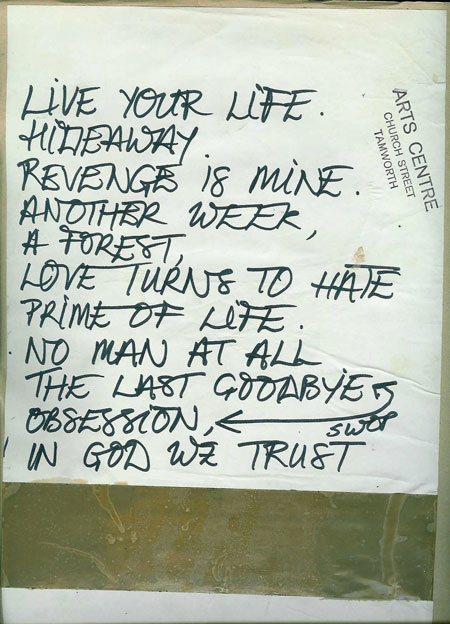 LIVE YOUR LIFE.
HIDEAWAY
REVENGE IS MINE.
ANOTHER WEEK,
A FOREST,
LOVE TURNS TO HATE
PRIME OF LIFE.
NO MAN AT ALL
THE LAST GOODBYE
OBSESSION,
SWOP
IN GOD WE TRUST
ARTS CENTRE
CHURCH STREET
TAMWORTH